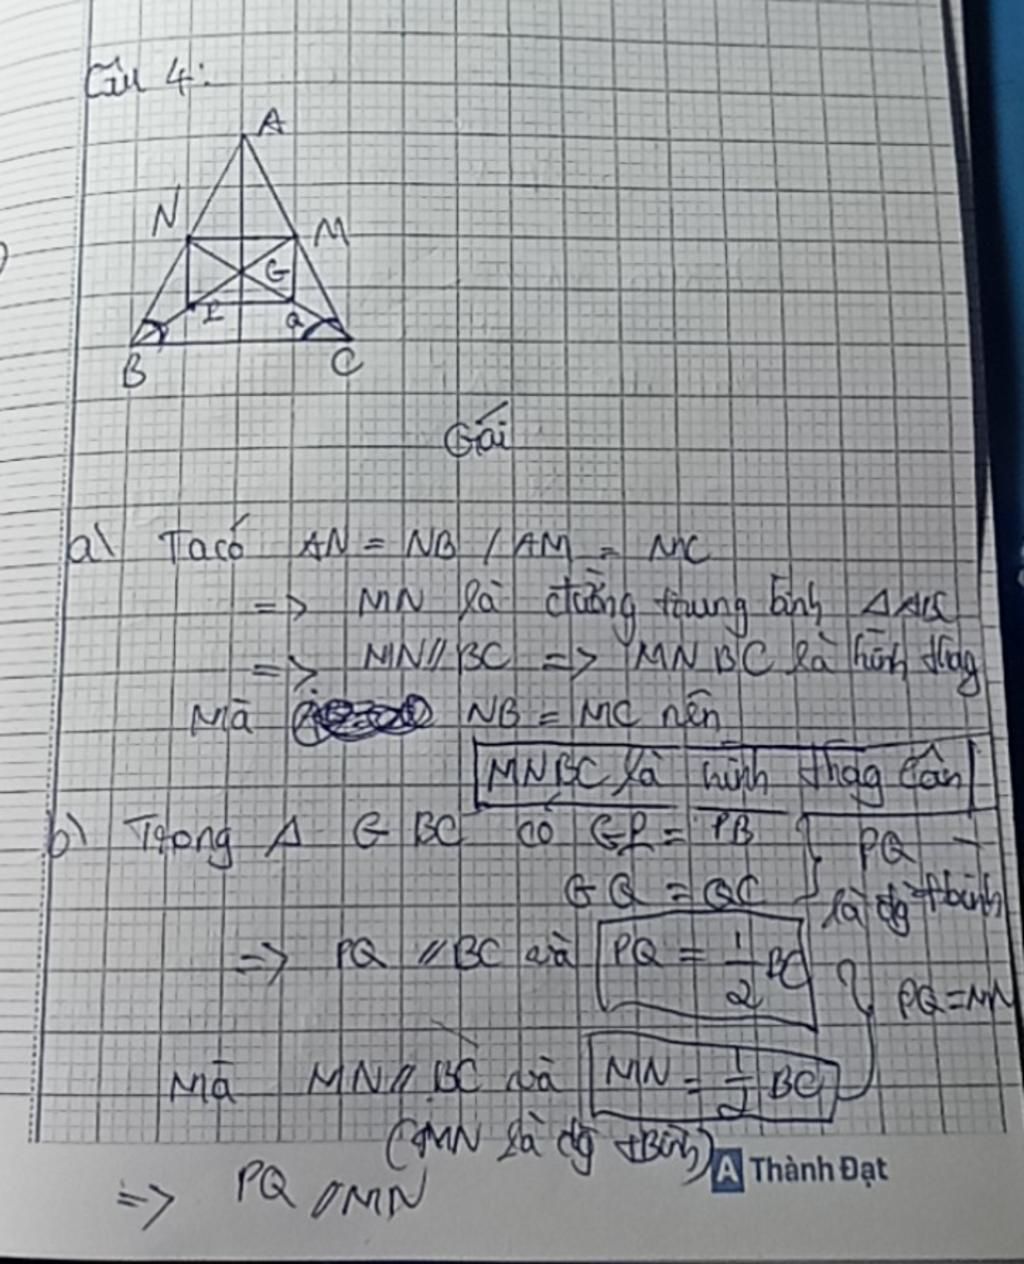 Câu 4:
A
N
M
G
P
Q
B
C
Gải
a\ Ta có AN = NB / AM = MC
=> MN là đường trung bình Δ ABC
=> MN // BC => MNBC là hình thag
Mà NB = MC nên
MNBC là hình thag cân
b) Trong Δ GBC có GP = PB
GQ = QC
PQ
là đg tbình
=> PQ // BC và PQ = 1/2 BC
PQ = MN
Mà MN // BC và MN = 1/2 BC
(MN là đg tBình)
=> PQ // MN
A Thành Đạt